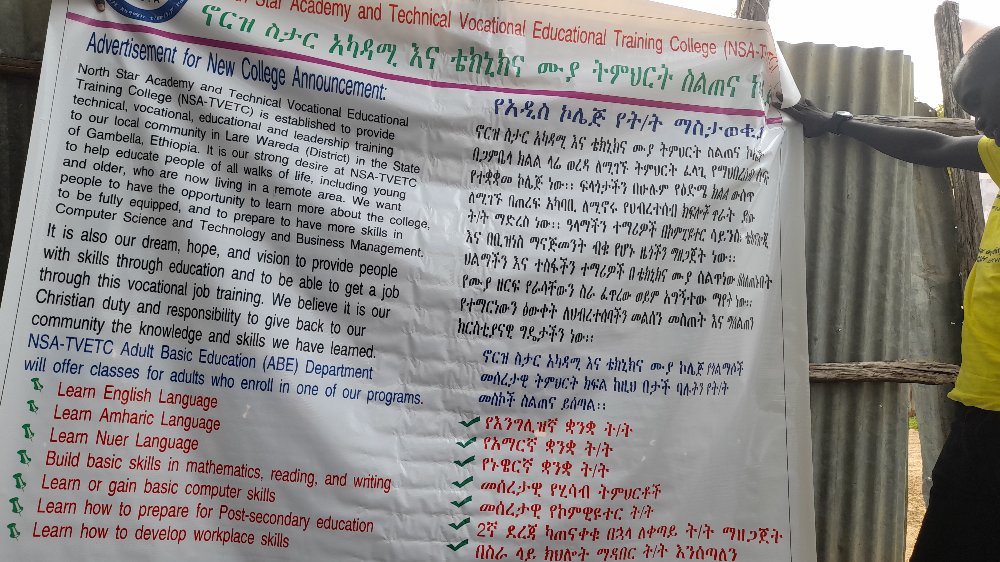 North Star Academy and Technical Vocational Educational Training College (NSA-T
ኖርዝ ስታር አካዳሚ እና ቴክኒክና ሙያ ትምህርት ስልጠና
Advertisement for New College Announcement:
North Star Academy and Technical Vocational Educational
Training College (NSA-TVETC) is established to provide
technical, vocational, educational and leadership training
to our local community in Lare Wareda (District) in the State
of Gambella, Ethiopia. It is our strong desire at NSA-TVETC
to help educate people of all walks of life, including young
and older, who are now living in a remote area. We want
people to have the opportunity to learn more about the college,
to be fully equipped, and to prepare to have more skills in
Computer Science and Technology and Business Management.
It is also our dream, hope, and vision to provide people
with skills through education and to be able to get a job
through this vocational job training. We believe it is our
Christian duty and responsibility to give back to our
community the knowledge and skills we have learned.
NSA-TVETC Adult Basic Education (ABE) Department
will offer classes for adults who enroll in one of our programs.
Learn English Language
Learn Amharic Language
Learn Nuer Language
Build basic skills in mathematics, reading, and writing
Learn or gain basic computer skills
Learn how to prepare for Post-secondary education
Learn how to develop workplace skills
የአዲስ ኮሌጅ የት/ት ማስታወቂያ
ኖርዝ ስታር አካዳሚ እና ቴክኒክና ሙያ ትምህርት ስልጠና ኮሌጅ
በጋምቤላ ክልል ላሬ ወረዳ ለሚገኙ ትምህርት ፈላጊ የማህበረሰብ
የተቋቋመ ኮሌጅ ነው። ፍላጎታችን በሁሉም የዕድሜ ክልል ውስጥ
ለሚገኙ በጠረፍ አካባቢ ለሚኖሩ የህብረተሰብ ክፍሎች ጥራት ያው
ት/ት ማድረስ ነው። ዓላማችን ተማሪዎች በኮምፒዩተር ሳይንስ ቴክኖሎጂ
እና በቢዝነስ ማናጅመንት ብቁ የሆኑ ዜጎችን ማዘጋጀት ነው።
ህልማችን እና ተስፋችን ተማሪዎች በቴክኒክ ሙያ ሰልጥነው
የሙያ ዘርፍ የራሳቸውን ስራ ፈጥረው ወይም አግኝተው ማየት ነው።
የተማርነውን ዕውቀት ለህብረተሰባችን መልሰን መስጠት እና ማገልገል
ክርስቲያናዊ ግዴታችን ነው።
ኖርዝ ስታር አካዳሚ እና ቴክኒክና ሙያ ኮሌጅ የጎልማሶች
መሰረታዊ ትምህርት ክፍል ከዚህ በታች ባሉትን የት/ት
መስኮች ስልጠና ይሰጣል።
የእንግሊዝኛ ቋንቋ ት/ት
የአማርኛ ቋንቋ ት/ት
የኑዌርኛ ቋንቋ ት/ት
መሰረታዊ የሂሳብ ትምህርቶች
መሰረታዊ የኮምፒዩተር ት/ት
2ኛ ደረጃ ካጠናቀቁ በኋላ ለቀጣይ ት/ት ማዘጋጀት
በስራ ላይ ክህሎት ማዳበር ት/ት እንሰጣለን